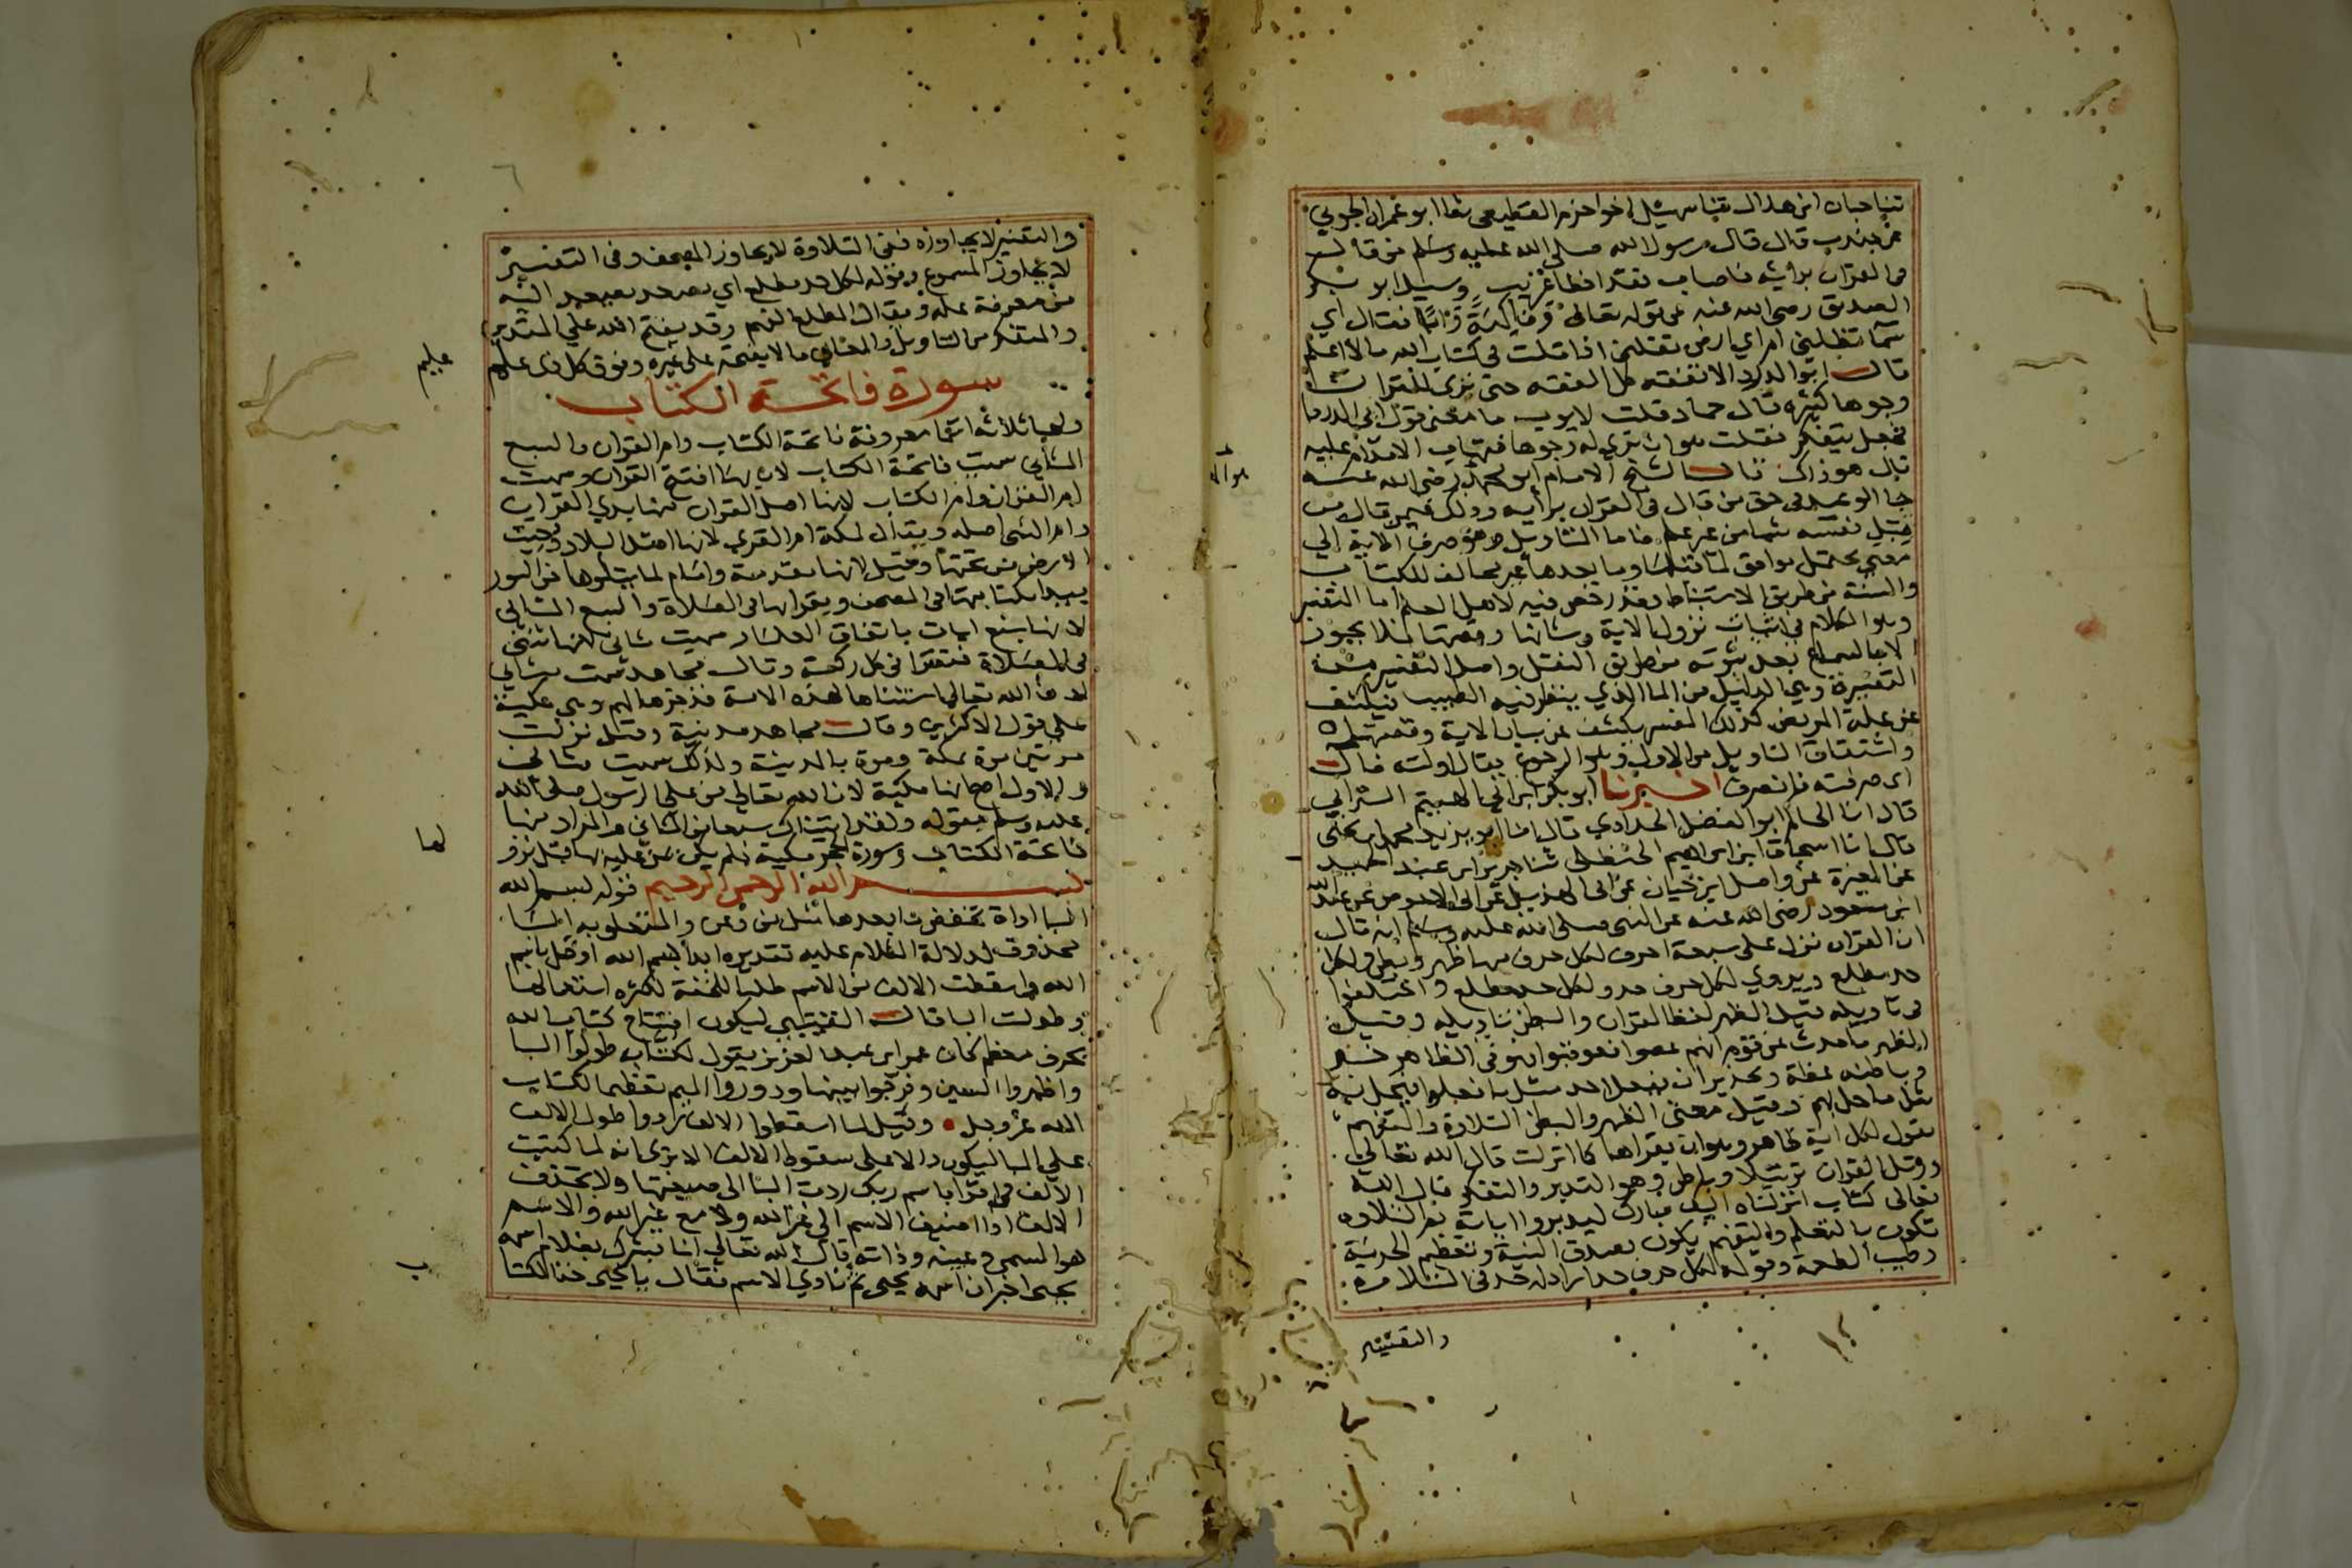 ثنا حبان ابن هلال ثنا سهيل اخو حزم القطيعي ثنا ابو عمران الجوني
عن جندب قال قال رسول الله صلى الله عليه وسلم من قال
في القران برأيه فاصاب فقد اخطا غريب وسيل ابو بكر
الصديق رضي الله عنه عن قوله تعالى وفاكهة وابا فقال اي
سما تظلني ام اي ارض تقلني اذا قلت في كتاب الله مالا اعلم
قال ابو الدردا لا تفقه كل الفقه حتى ترى للقران
وجوها كثيره قال حماد قلت لايوب ما معنى قول ابي الدردا
فجعل يتفكر فقلت هو ان ترى له وجوها فتهاب الاقدام عليه
قال هو ذاك قال الشيخ الامام ابو محمد رضي الله عنه
جا الوعيد في حق من قال في القران برأيه وذلك فيمن قال من
قبل نفسه شيا من غير علم فاما التاويل وهو صرف الاية الى
معنى محتمل موافق لما قبلها وما بعدها غير مخالف للكتاب
والسنة من طريق الاستنباط فقد رخص فيه لاهل العلم اما التفسير
وهو الكلام في اسباب نزول الاية وشانها وقصتها فلا يجوز
الا بالسماع بعد ثبوته من طريق النقل واصل التفسير من
التفسرة وهي الدليل من الما الذي ينظر فيه الطبيب فيكشف
عن علة المريض كذلك المفسر يكشف عن شان الاية وقصتها
واشتقاق التاويل من الاول وهو الرجوع يقال اولته فال
اى صرفته فانصرف اخبرنا ابو بكر ابن ابي الهيثم الترابي
قال انا الحاكم ابو الفضل الحدادي قال انا ابو يزيد محمد ابن يحيى
قال انا اسحاق ابن ابراهيم الحنظلي ثنا جرير ابن عبد الحميد
عن المغيرة عن واصل ابن حيان عن ابي الهذيل عن ابي الاحوص عن عبد الله
ابن مسعود رضي الله عنه عن النبي صلى الله عليه وسلم انه قال
ان القران نزل على سبعة احرف لكل حرف منها ظهر وبطن ولكل
حد مطلع ويروي لكل حرف حد ولكل حد مطلع واختلفوا
في تاويله قيل الظهر لفظ القران والبطن تاويله وقيل
الظهر ما حدث عن قوم انهم عصوا فعوقبوا فهو في الظاهر خبر
وباطنه عظة وتحذير ان يفعل احد مثل ما فعلوا فيحل به
مثل ما حل بهم وقيل معنى الظهر والبطن التلاوة والتفهم
يقول لكل اية ظاهر وهو ان يقراها كما انزلت قال الله تعالى
ورتل القران ترتيلا وباطن وهو التدبر والتفكر قال الله
تعالى كتاب انزلناه اليك مبارك ليدبروا اياته ثم التلاوه
تكون بالتعلم والتفهم يكون بصدق النية وتعظيم الحرمة
وطيب الطعمة وقوله لكل حرف حد اراد له حد في التلاوة
والتفسير
والتفسير لا يجاوزه ففي التلاوة لا يجاوز المصحف وفي التفسير
لا يجاوز المسموع وقوله لكل حد مطلع اي مصعد يصعد اليه
من معرفة علمه ويقال المطلع الفهم وقد يفتح الله على المتدبر
والمتفكر من التاويل والمعاني ما لا يفتحه على غيره وفوق كل ذي علم
عليم
سورة فاتحة الكتاب
ولها ثلاثة اسما معروفة فاتحة الكتاب وام القران والسبع
المثاني سميت فاتحة الكتاب لان بها افتتح القران وسميت
ام القران وام الكتاب لانها اصل القران منها بدي القران
وام الشي اصله ويقال لمكة ام القرى لانها اصل البلاد دحيت
الارض من تحتها وقيل لانها مقدمة وامام لما يتلوها من السور
يبدا بكتابتها في المصحف ويقرانها في الصلاة والسبع المثاني
لانها سبع ايات باتفاق العلماء سميت مثاني لانها تثنى
في الصلاة فتقرا في كل ركعة وقال مجاهد سميت مثاني
لان الله تعالى استثناها لهذه الامة فذخرها لهم وهي مكية
على قول الاكثرين وقال مجاهد مدنية وقيل نزلت
مرتين مرة بمكة ومرة بالمدينة ولذلك سميت مثاني
والاول اصح انها مكية لان الله تعالى من على الرسول صلى الله
عليه وسلم بقوله ولقد اتيناك سبعا من المثاني والمراد منها
فاتحة الكتاب وسورة الحجر مكية فلم يكن يمن عليه بها قبل نزو
لها
بسم الله الرحمن الرحيم قوله بسم الله
البا اداة تخفض ما بعدها مثل من وعن والمتعلق به البا
محذوف لدلالة الكلام عليه تقديره ابدا بسم الله او قل بسم
الله واسقطت الالف من الاسم طلبا للخفة لكثرة استعمالها
وطولت البا قال القتيبي ليكون افتتاح كتاب الله
بحرف معظم كان عمر ابن عبد العزيز يقول لكتابه طولوا البا
واظهروا السين وفرجوا بينها ودوروا الميم تعظيما لكتاب
الله عز وجل وقيل لما اسقطوا الالف ردوا طول الالف
على البا ليكون دالا على سقوط الالف الا ترى انه لما كتبت
الالف في اقرا باسم ربك ردت البا الى صيغتها ولا تحذف
الالف اذا اضيف الاسم الى غير الله ولا مع غير البا والاسم
هو المسمى وعينه وذاته قال الله تعالى انا نبشرك بغلام اسمه
يحيى اخبر ان اسمه يحيى ثم نادى الاسم فقال يا يحيى خذ الكتا
ب